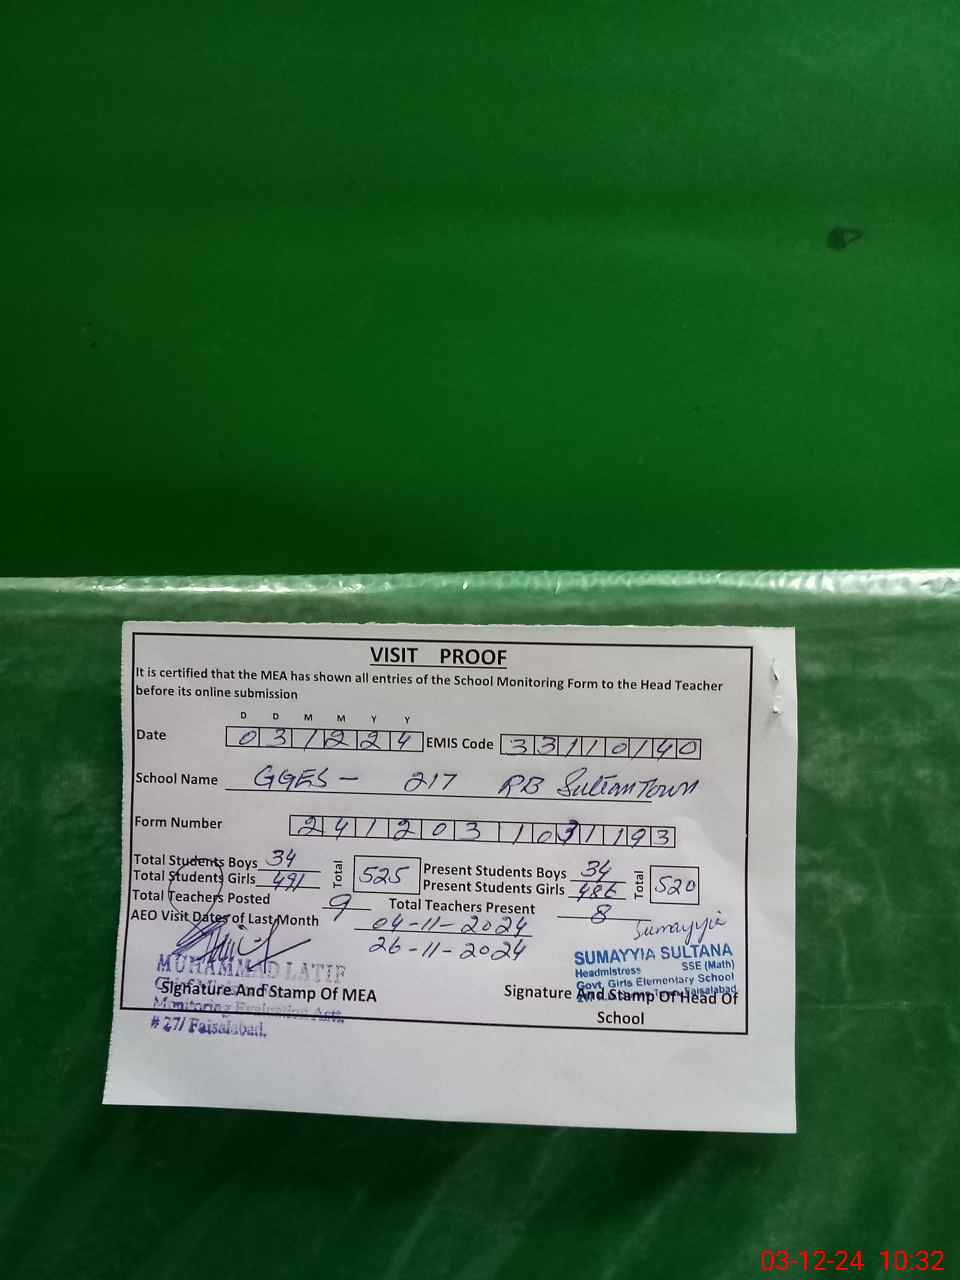 VISIT PROOF
It is certified that the MEA has shown all entries of the School Monitoring Form to the Head Teacher
before its online submission
D D M M Y Y
Date 031224 EMIS Code 33110140
School Name GGES - 217 RB Sultan Town
Form Number 241203 1031193
Total Students Boys 34 Total 525 Present Students Boys 34 Total 520
Total Students Girls 491 Present Students Girls 486
Total Teachers Posted 9 Total Teachers Present 8
AEO Visit Dates of Last Month 04-11-2024
26-11-2024
Sumayyia
MUHAMMAD LATIF
Monitoring Evaluation Asstt.
# 27/ Faisalabad.
Signature And Stamp Of MEA
SUMAYYIA SULTANA
Headmistress SSE (Math)
Govt. Girls Elementary School
Faisalabad
Signature And Stamp Of Head Of
School
03-12-24 10:32